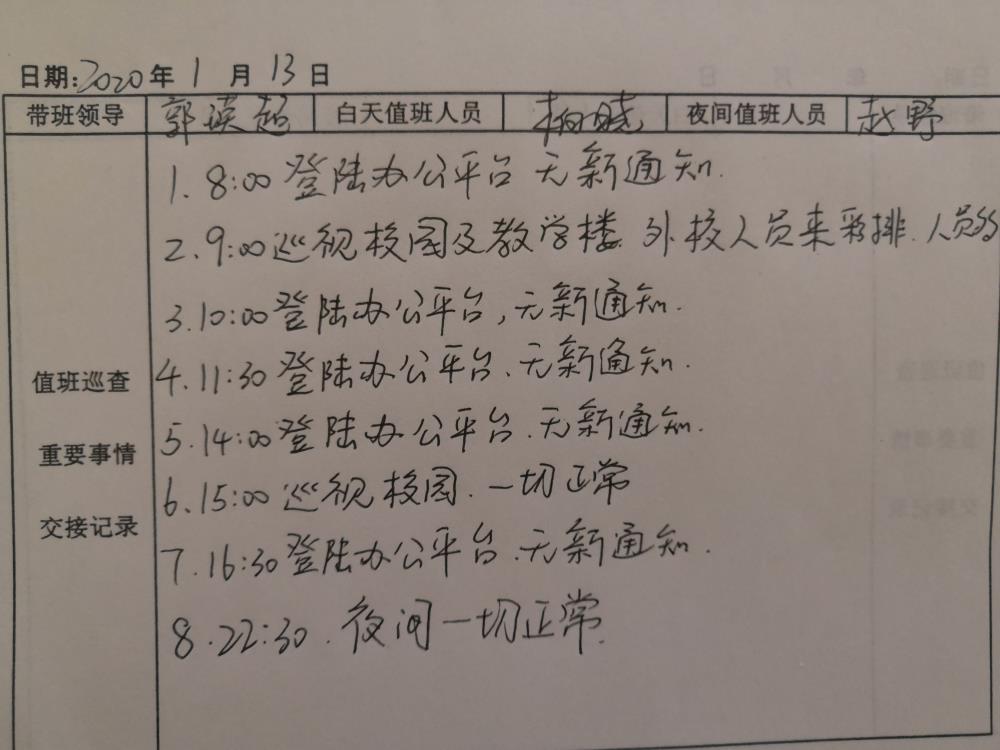 日期:2020年1月13日
带班领导 郭瑛超 白天值班人员 柏晓 夜间值班人员 赵野
1.8:00登陆办公平台 无新通知.
2.9:00巡视校园及教学楼.外校人员来彩排.人员约
3.10:00登陆办公平台,无新通知.
值班巡查 4.11:30登陆办公平台.无新通知.
重要事情 5.14:00登陆办公平台.无新通知.
6.15:00巡视校园.一切正常
交接记录 7.16:30登陆办公平台.无新通知.
8.22:30.夜间一切正常.